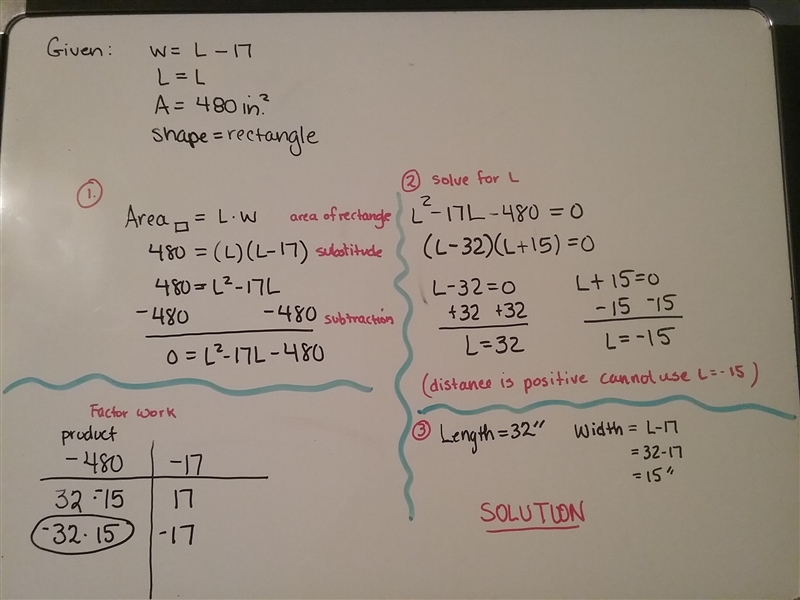 Given: W = L - 17
L = L
A = 480 in.²
shape = rectangle
1.
Area▭ = L · W area of rectangle
480 = (L)(L-17) substitude
480 = L² - 17L
-480 -480 subtraction
0 = L² - 17L - 480
Factor work
product
-480 -17
32 · -15 17
-32 · 15 -17
2 solve for L
L² - 17L - 480 = 0
(L-32)(L+15) = 0
L - 32 = 0 L + 15 = 0
+32 +32 -15 -15
L = 32 L = -15
(distance is positive cannot use L = -15)
3 Length = 32" Width = L-17
= 32-17
= 15"
SOLUTION